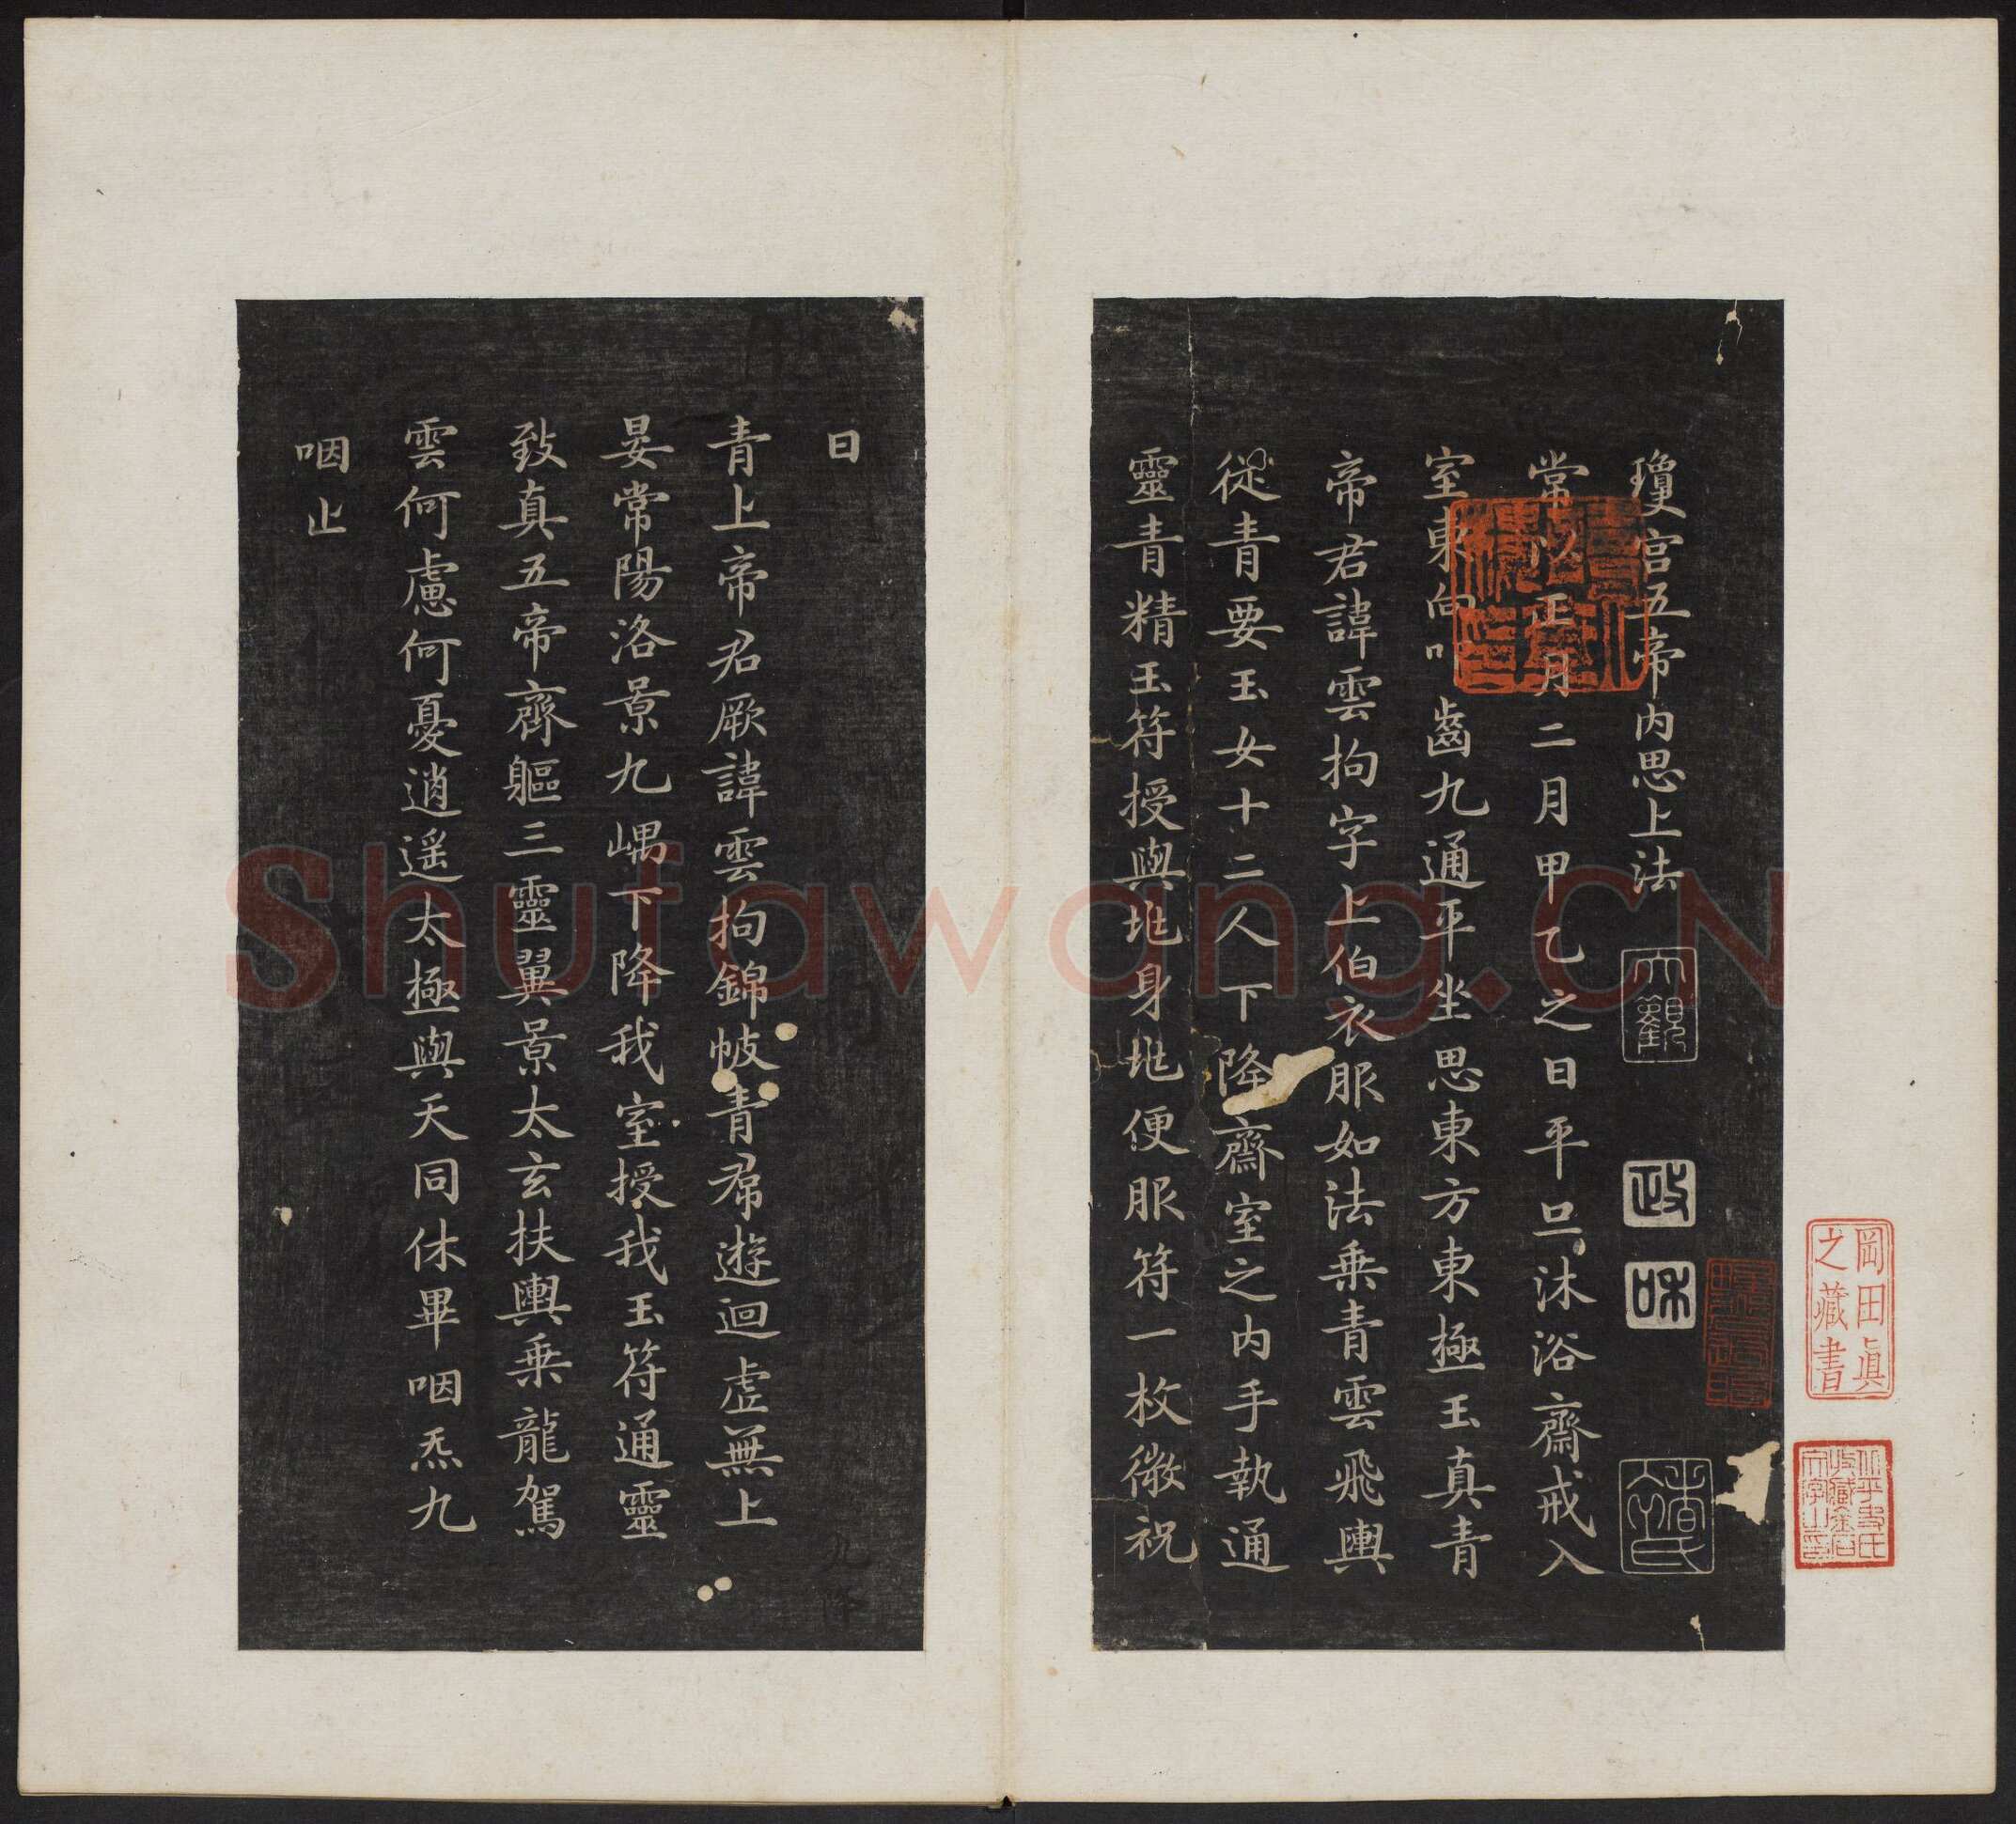 瓊宮五帝内思上法
常以正月二月甲乙之日平旦沐浴齋戒入
室東向叩齒九通平坐思東方東極玉真青
帝君諱雲拘字上伯衣服如法乗青雲飛輿
從青要玉女十二人下降齋室之内手執通
靈青精玉符授與兆身兆便服符一枚微祝
曰
青上帝君厥諱雲拘錦帔青帬遊迴虛無上
晏常陽洛景九嵎下降我室授我玉符通靈
致真五帝齊軀三靈翼景太玄扶輿乗龍駕
雲何慮何憂逍遥太極與天同休畢咽炁九
咽止
大觀
政
和
岡田真
之藏書
Shufawang.CN